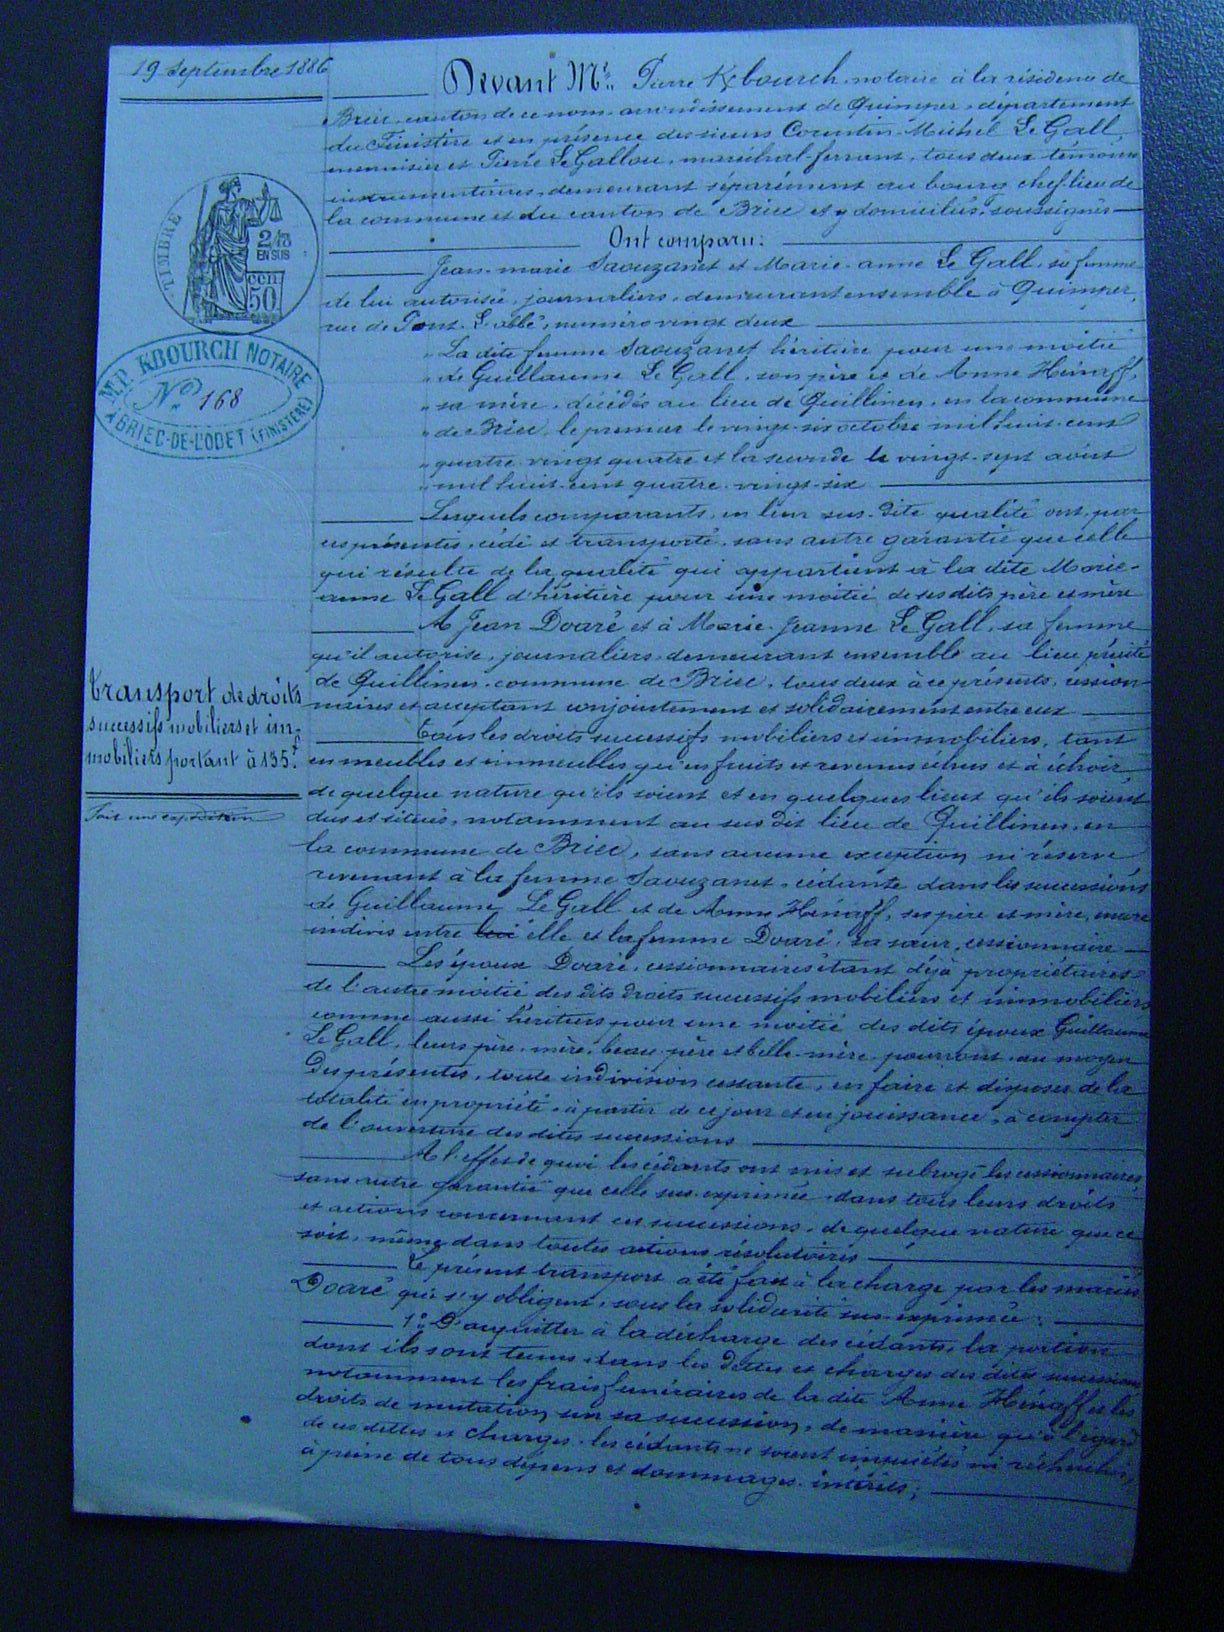 19 Septembre 1886
Devant Me Pierre Kbourch, notaire à la résidence de
Briec, canton de ce nom, arrondissement de Quimper, département
du Finistère et en présence des sieurs Corentin-Michel Le Gall,
menuisier et Pierre Le Gallou, maréchal-ferrant, tous deux témoins
instrumentaires, demeurant séparément au bourg chef-lieu de
la commune et du canton de Briec et y domiciliés, soussignés
Ont comparu:
Jean-marie Saouzanet et Marie-anne Le Gall, sa femme
de lui autorisée, journaliers, demeurant ensemble à Quimper,
rue de Pont-L'abbé, numéro vingt deux
" La dite femme Saouzanet héritière pour une moitié
" de Guillaume Le Gall, son père et de Anne Hénaff,
" sa mère, décédés au lieu de Quillinen, en la commune
" de Briec, le premier le vingt-six octobre mil huit-cent
" quatre-vingt quatre et la seconde le vingt-sept août
" mil huit-cent quatre-vingt-six
Lesquels comparants, en leur sus-dite qualité ont, par
ces présentes, cédé et transporté, sans autre garantie que celle
qui résulte de la qualité qui appartient à la dite Marie-
anne Le Gall d'héritière pour une moitié de ses dits père et mère
A Jean Doaré et à Marie-Jeanne Le Gall, sa femme
qu'il autorise, journaliers, demeurant ensemble au lieu précité
de Quillinen, commune de Briec, tous deux à ce présents, cession-
naires et acceptant conjointement et solidairement entre eux
Tous les droits successifs mobiliers et immobiliers, tant
en meubles et immeubles qu'en fruits et revenus échus et à échoir,
de quelque nature qu'ils soient et en quelques lieux qu'ils soient
dus et situés, notamment au sus dit lieu de Quillinen, en
la commune de Briec, sans aucune exception ni réserve
revenant à la femme Saouzanet, cédante dans les successions
de Guillaume Le Gall et de Anne Hénaff, ses père et mère, encore
indivis entre elle et la femme Doaré, sa sœur, cessionnaire
Les époux Doaré, cessionnaires étant déjà propriétaires
de l'autre moitié des dits droits successifs mobiliers et immobiliers
comme aussi héritiers pour une moitié des dits époux Guillaume
Le Gall, leurs père, mère, beau-père et belle-mère, pourront, au moyen
des présentes, toute indivision cessante, en faire et disposer de la
totalité en propriété, à partir de ce jour et en jouissance, à compter
de l'ouverture des dites successions
A l'effet de quoi les cédants ont mis et subrogé les cessionnaires,
sans autre garantie que celle sus-exprimée, dans tous leurs droits
et actions concernant ces successions, de quelque nature que ce
soit, même dans toutes actions résolutoires
Le présent transport a été fait à la charge par les mariés
Doaré qui s'y obligent, sous la solidarité sus-exprimée:
1° D'acquitter à la décharge des cédants, la portion
dont ils sont tenus dans les dettes et charges des dites successions,
notamment les frais funéraires de la dite Anne Hénaff et les
droits de mutation sur sa succession, de manière qu'à l'égard
de ces dettes et charges, les cédants ne soient inquiétés ni recherchés,
à peine de tous dépens et dommages-intérêts;
TIMBRE
2/10
EN SUS
CEN.
50
M.P. KBOURCH NOTAIRE
No 168
A BRIEC-DE-L'ODET (FINISTÈRE)
Transport de droits
successifs mobiliers et im-
mobiliers portant à 135f.
Fait une expédition